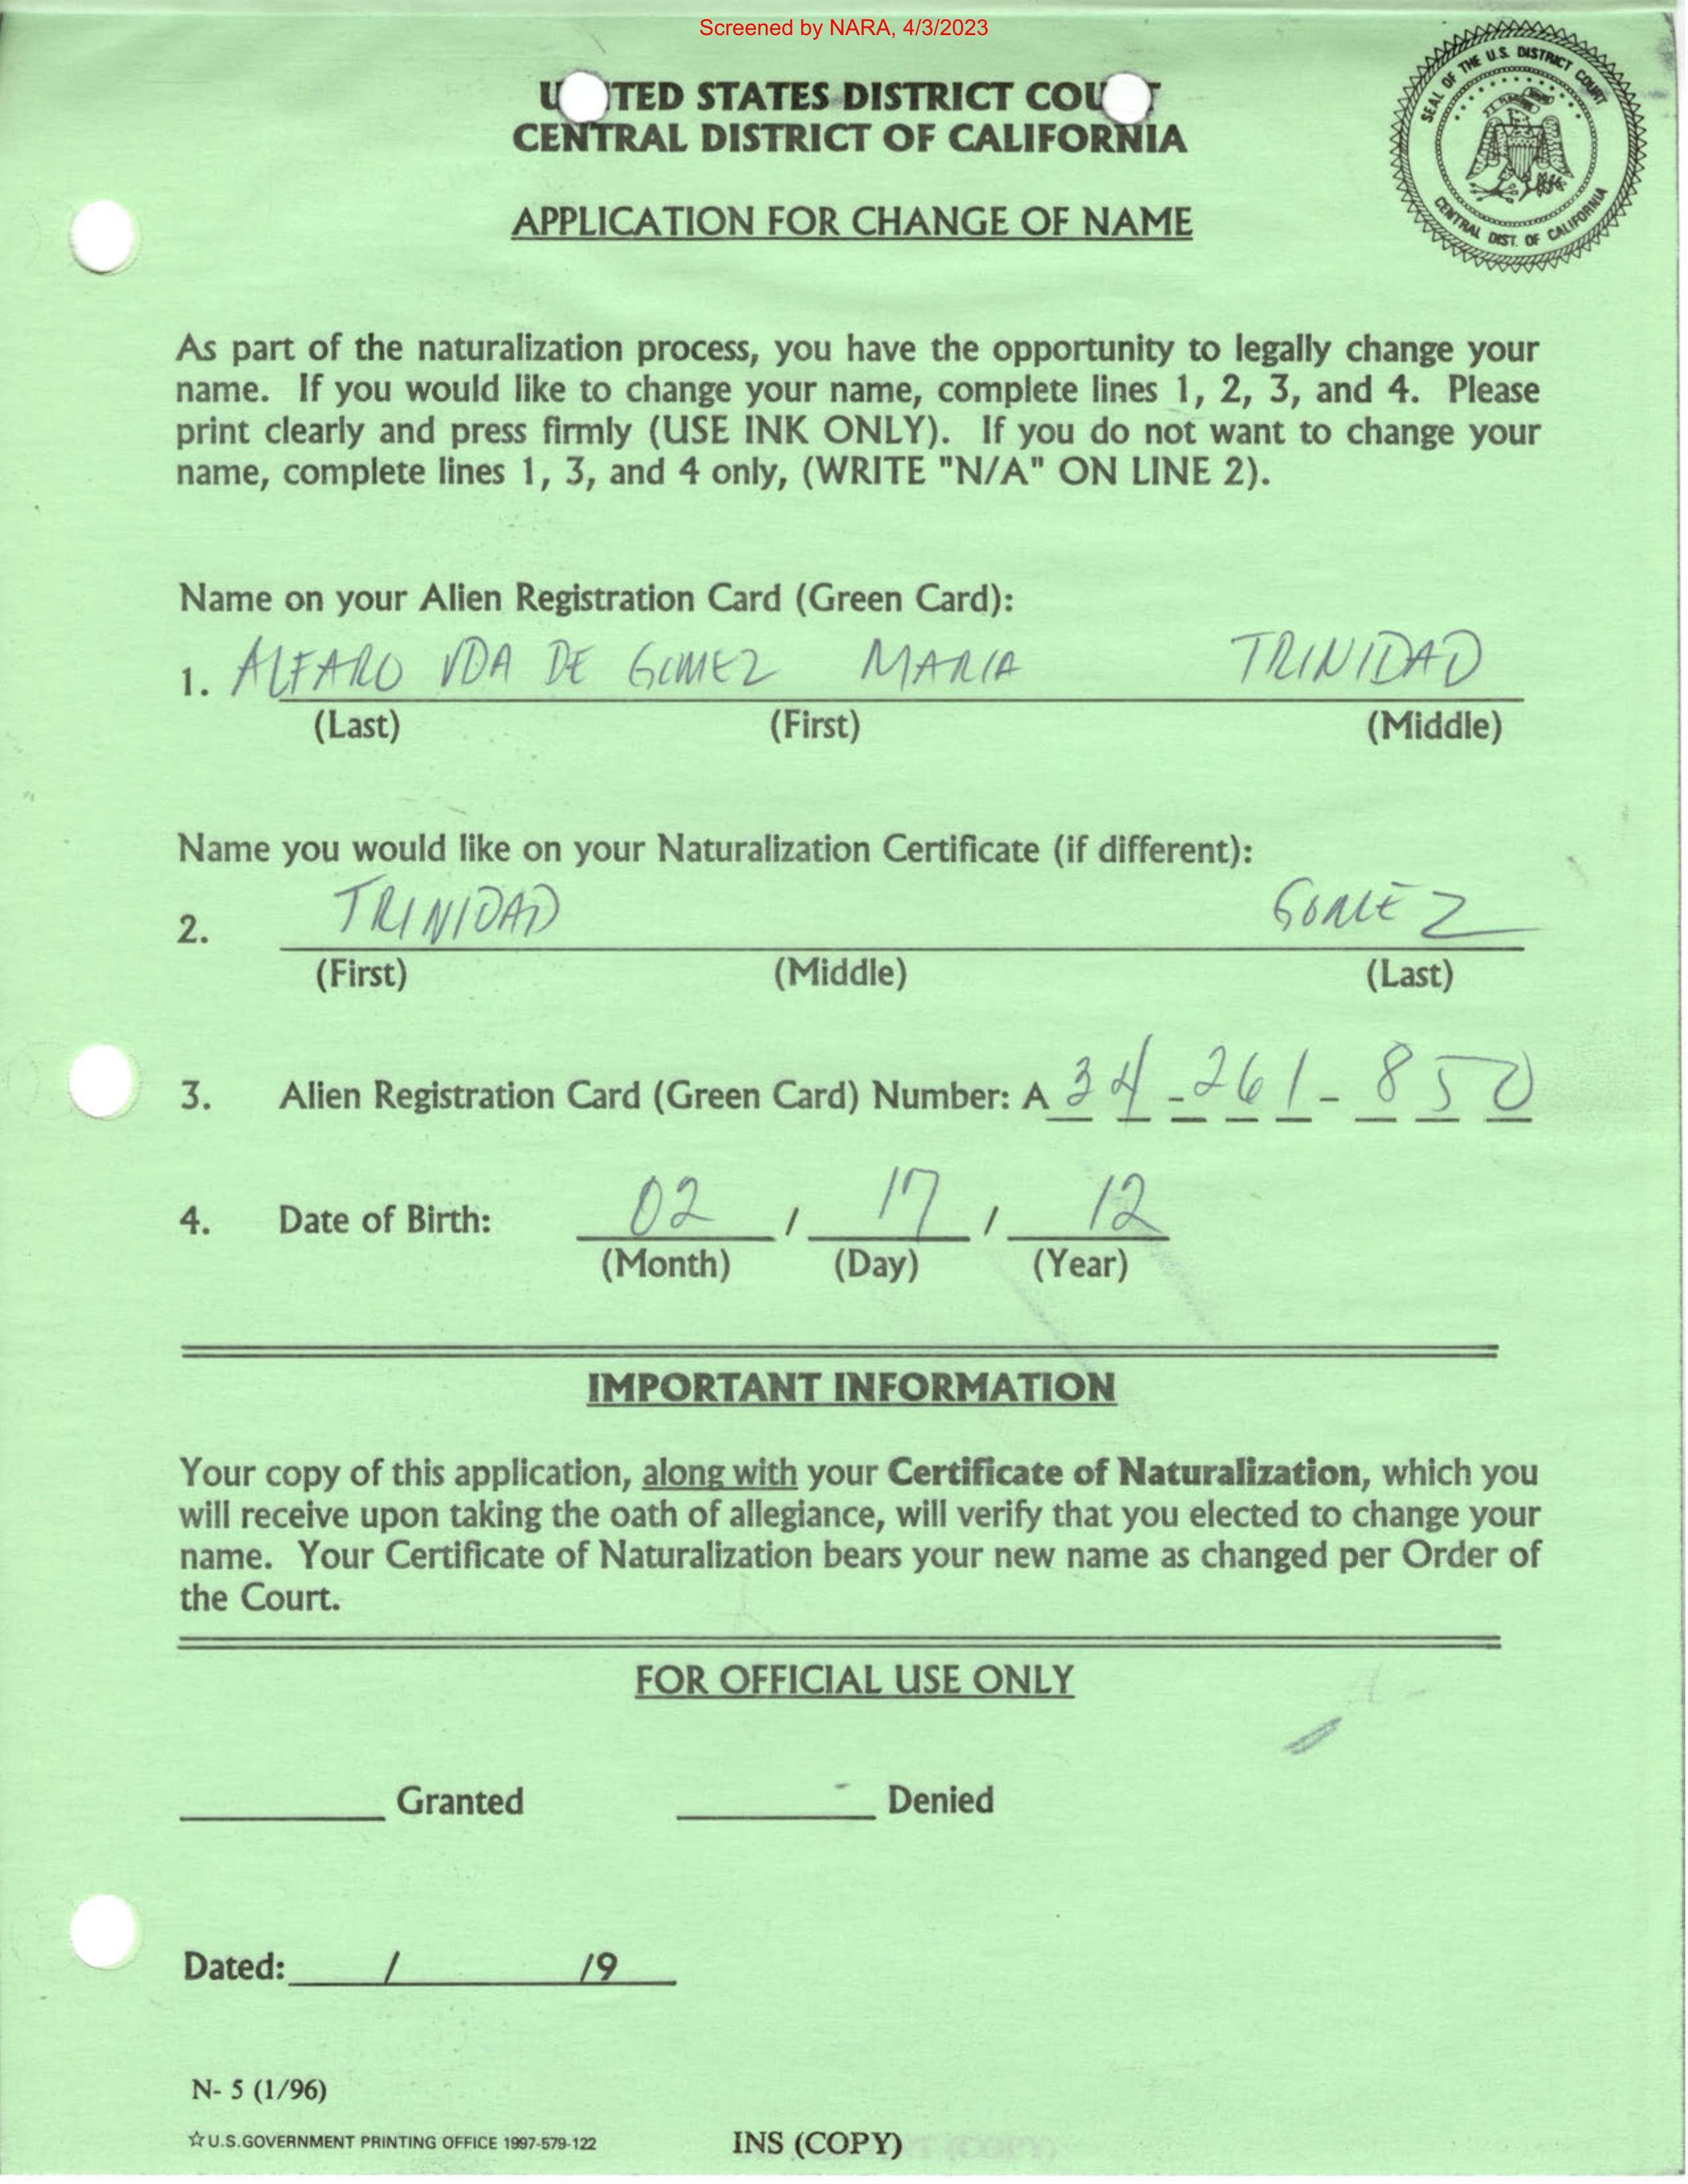 Screened by NARA, 4/3/2023
UNITED STATES DISTRICT COURT
CENTRAL DISTRICT OF CALIFORNIA
SEAL OF THE U.S. DISTRICT COURT
CENTRAL DIST. OF CALIFORNIA
APPLICATION FOR CHANGE OF NAME
As part of the naturalization process, you have the opportunity to legally change your
name. If you would like to change your name, complete lines 1, 2, 3, and 4. Please
print clearly and press firmly (USE INK ONLY). If you do not want to change your
name, complete lines 1, 3, and 4 only, (WRITE "N/A" ON LINE 2).
Name on your Alien Registration Card (Green Card):
1. ALFARO VDA DE GOMEZ MARIA TRINIDAD
(Last) (First) (Middle)
Name you would like on your Naturalization Certificate (if different):
2. TRINIDAD GOMEZ
(First) (Middle) (Last)
3. Alien Registration Card (Green Card) Number: A 34-261-850
4. Date of Birth: 02 / 17 / 12
(Month) (Day) (Year)
IMPORTANT INFORMATION
Your copy of this application, along with your Certificate of Naturalization, which you
will receive upon taking the oath of allegiance, will verify that you elected to change your
name. Your Certificate of Naturalization bears your new name as changed per Order of
the Court.
FOR OFFICIAL USE ONLY
Granted Denied
Dated: / /9
N- 5 (1/96)
☆U.S.GOVERNMENT PRINTING OFFICE 1997-579-122 INS (COPY)